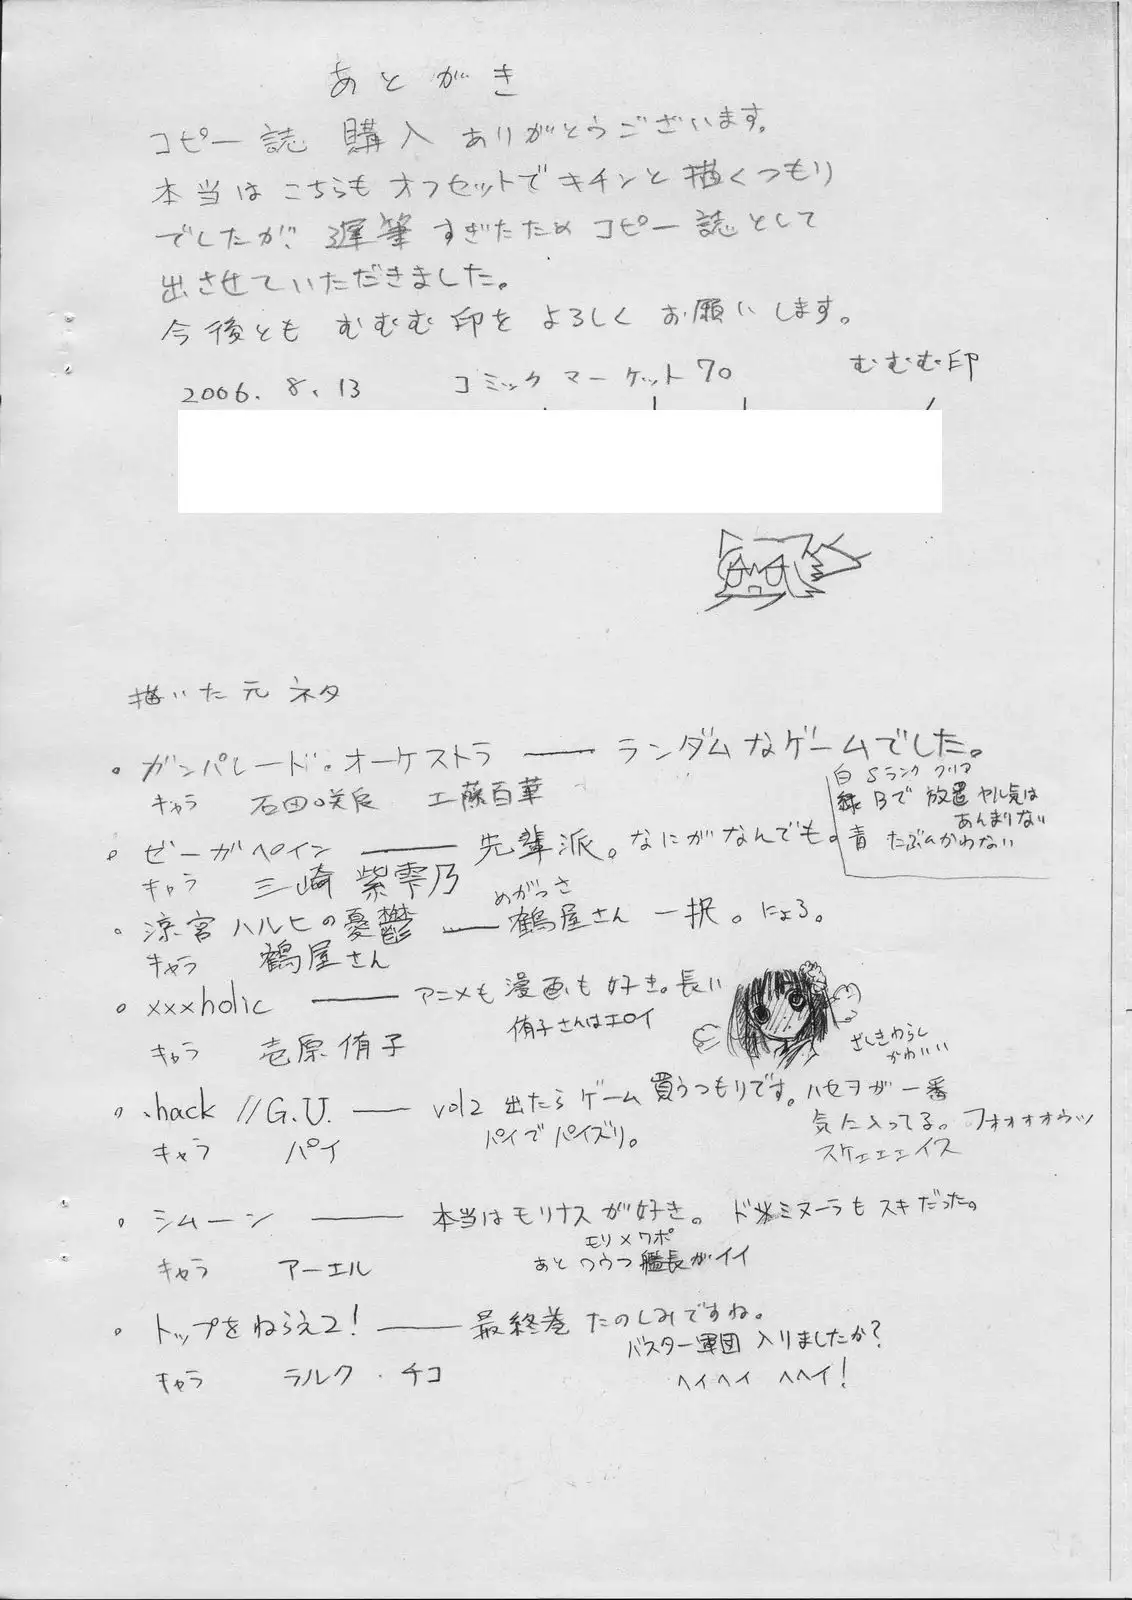 あとがき
コピー誌 購入 ありがとうございます。
本当は こちらも オフセットで キチンと 描くつもり
でしたが、遅筆 すぎたため コピー誌として
出させていただきました。
今後とも むむむ印を よろしく お願いします。
2006.8.13 コミックマーケット70 むむむ印
描いた元ネタ
・ガンパレード・オーケストラ ── ランダムなゲームでした。
白 Sランク クリア
緑 Bで 放置 ヤル気は
あんまりない
青 たぶんかわない
キャラ 石田咲良 工藤百華
・ゼーガペイン ── 先輩派。なにがなんでも。
キャラ 三崎 紫雫乃
・涼宮ハルヒの憂鬱 ── 鶴屋さん 一択。にょろ。
めがっさ
キャラ 鶴屋さん
・xxxholic ── アニメも 漫画も 好き。長い
侑子さんはエロイ
キャラ 壱原侑子
ざしきわらし
かわいい
・.hack //G.U. ── vol2 出たら ゲーム 買うつもりです。ハセヲが 一番
気に入ってる。フォォォォウッ
スケェェェイス
パイで パイズリ。
キャラ パイ
・シムーン ── 本当は モリナスが 好き。ドミヌーラも スキだった。
モリ×ワポ
あと ワウフ 艦長がイイ
キャラ アーエル
・トップをねらえ2! ── 最終巻 たのしみですね。
バスター軍団 入りましたか?
ヘイヘイ ヘヘイ!
キャラ ラルク・チコ